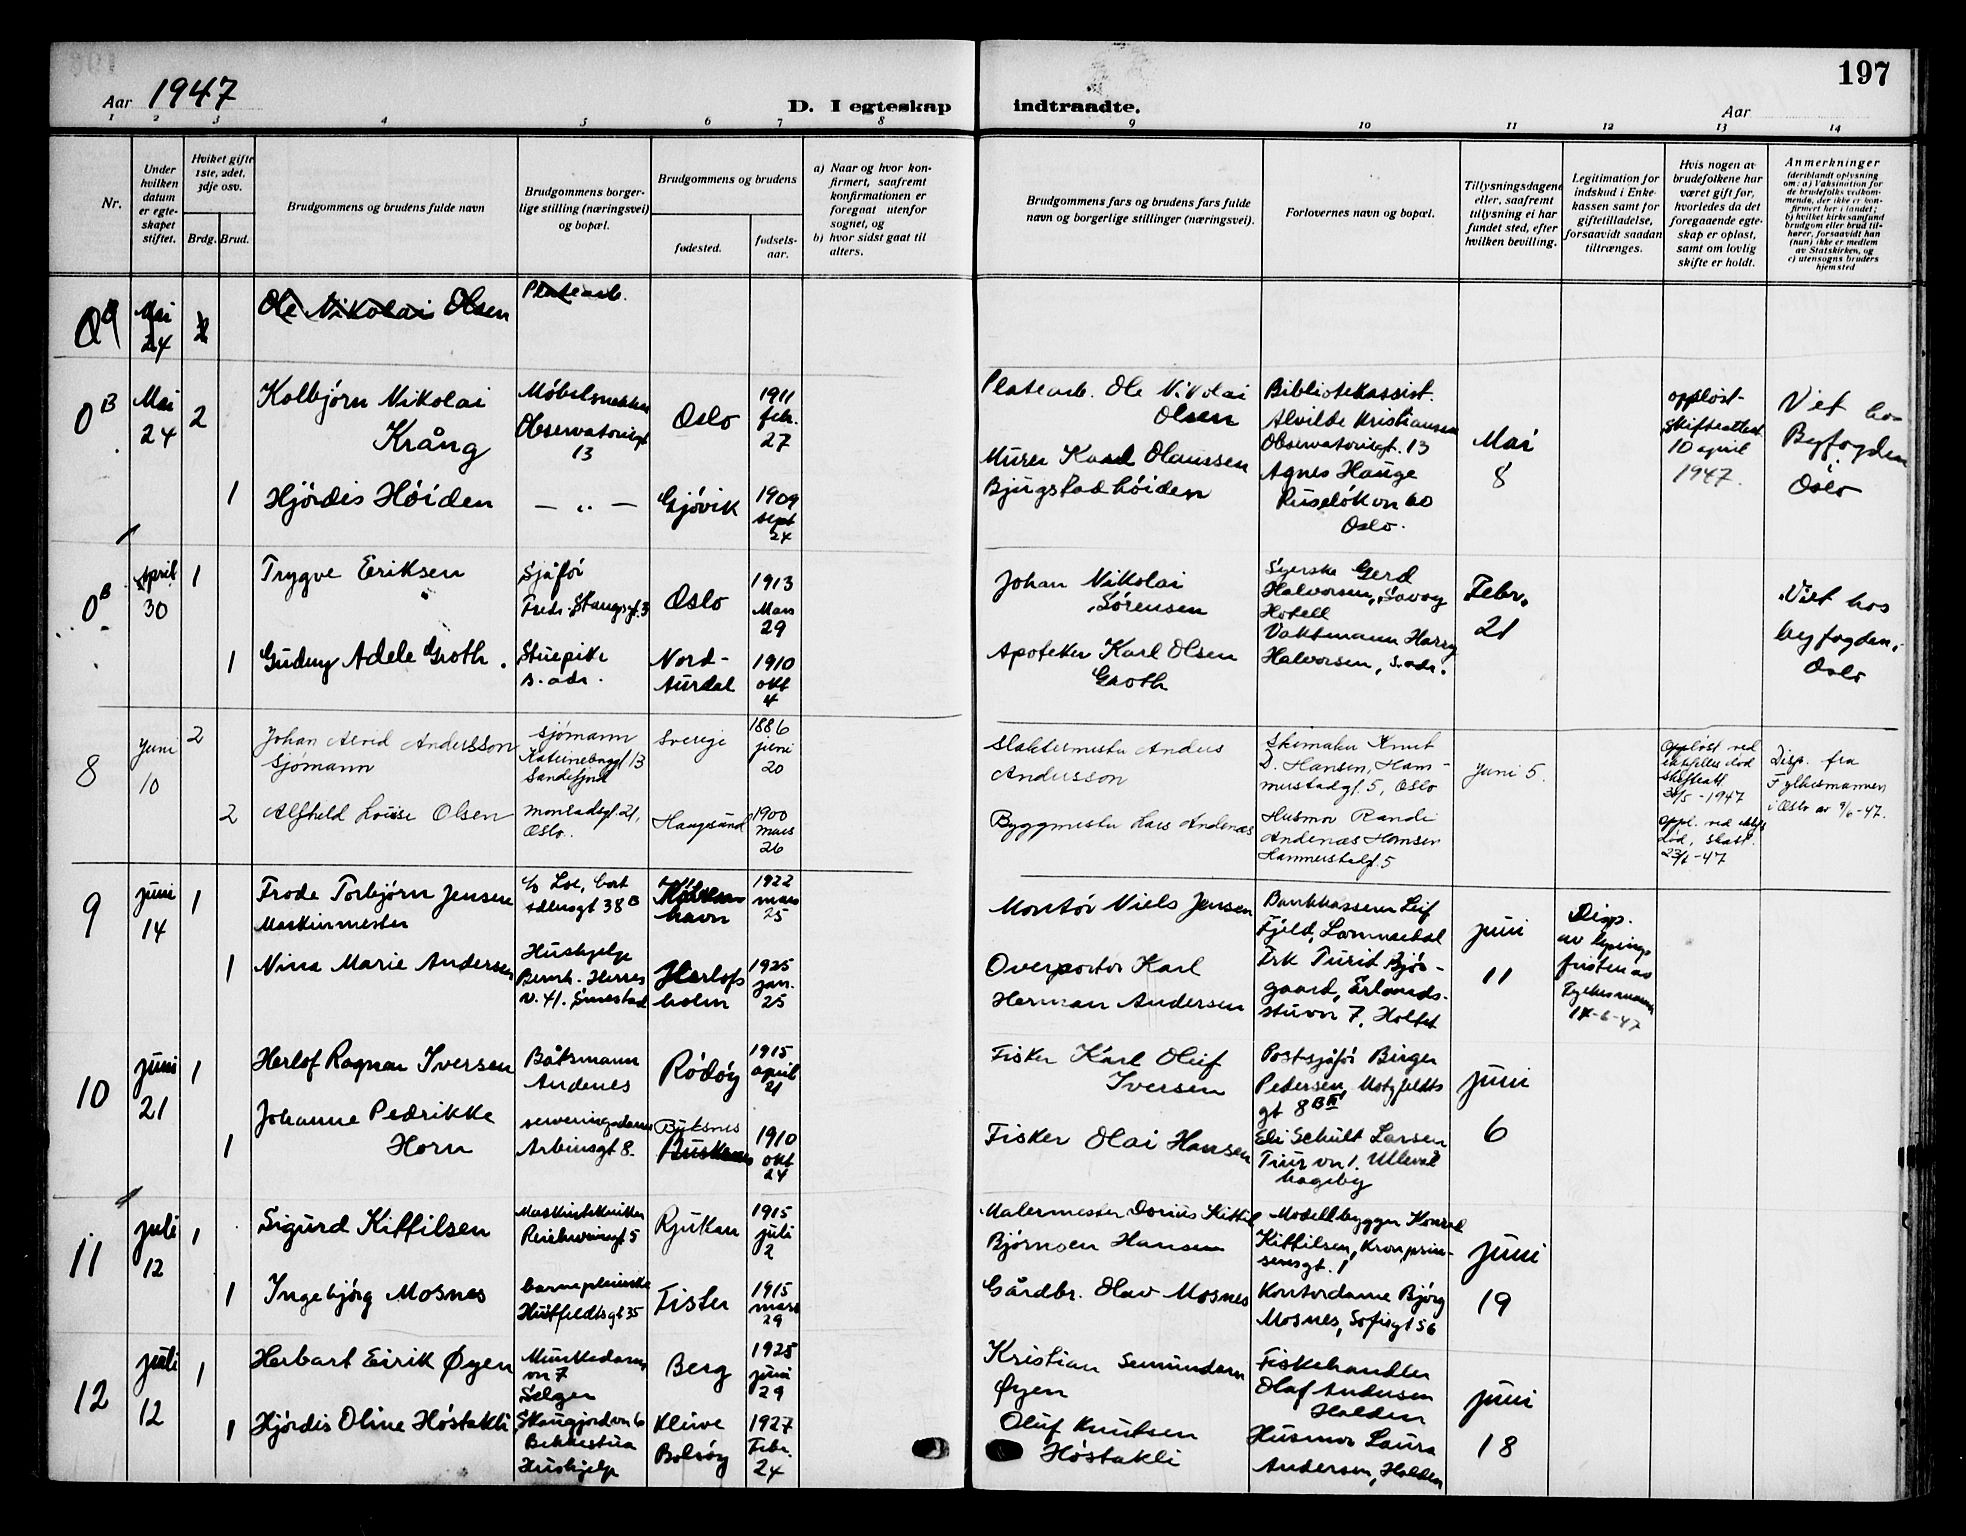 Aar 1947
D. I egteskap indtraadte.
Aar
197
1 2 3 4 5 6 7 8 9 10 11 12 13 14
Nr.
Under hvilken datum er egteskapet stiftet.
Hviket gifte 1ste, 2det, 3dje osv.
Brdg. Brud.
Brudgommens og brudens fulde navn
Brudgommens borgerlige stilling (næringsvei) og bopæl.
Brudgommens og brudens
fødested.
fødselsaar.
a) Naar og hvor konfirmert, saafremt konfirmationen er foregaat utenfor sognet, og
b) hvor sidst gaat til alters.
Brudgommens fars og brudens fars fulde navn og borgerlige stillinger (næringsvei).
Forlovernes navn og bopæl.
Tillysningsdagene eller, saafremt tillysning ei har fundet sted, efter hvilken bevilling.
Legitimation for indskud i Enkekassen samt for giftetilladelse, forsaavidt saadan tiltrænges.
Hvis nogen av brudefolkene har været gift før, hvorledes da det foregaaende egteskap er opløst, samt om lovlig skifte er holdt.
Anmerkninger (deriblandt oplysning om: a) Vaksination for de brudefolks vedkommende, der ikke er konfirmert her i landet; b) hvilket kirkesamfund brudgom eller brud tilhører, forsaavidt han (hun) ikke er medlem av Statskirken, og c) utensogns bruders hjemsted
Mai 24
2
Ole Nikolai Olsen
Platearb.
0B
Mai 24
2
Kolbjørn Nikolai Krång
Møbelsnekker
Observatoriegt 13
Oslo
1911 febr. 27
Platearb. Ole Nikolai Olsen
Bibliotekassist. Alvilde Kristiansen
Observatoriegt. 13
Mai 8
oppløst - Skifteattest 10 april 1947.
Viet hos Byfogden Oslo
1
Hjördis Höiden
— „ —
Gjövik
1909 sept 24
Murer Karl Olaussen Bjugstad höiden
Agnes Hauge
Ruseløkvn 60
Oslo.
0B
April 30
1
Trygve Eriksen
Sjåför
Fredr. Stangsgt. 3
Oslo
1913 Mars 29
Johan Nikolai Sørensen
Syerske Gerd Halvorsen, Savoy Hotell
Febr. 21
Viet hos byfogden, Oslo
1
Gudny Adele Groth.
Stuepike
s. adr.
Nord-Aurdal
1910 okt 4
Apoteker Karl Olsen Groth
Vaktmann Harry Halvorsen, s. adr.
8
Juni 10
2
Johan Alvid Andersson
sjømann
sjømann
Sandefjord
Sverige
1886 juni 20
Slaktermester Anders Andersson
Knut D. Hansen, Hammerstadgt. 5, Oslo
Juni 5.
Oppløst ved
-1947
Disp. fra Fylkesmannen i Oslo av 9/6-47.
2
Alfhild Louise Olsen
Monradsgt. 21, Oslo.
Haugesund
1900 mars 26
Byggmester Lars Andenæs
Husmor Randi Andenæs Hansen
Hammerstadgt. 5
9
juni 14
1
Frode Torbjørn Jensen
Maskinmester
c/o Loe, Cort Adlersgt 38B
København
1922 mars 25
Montør Niels Jensen
Bankkasserer Leif Fjeld, Lommedal
juni 11
Disp. av lysingsfristen av Fylkesmannen
14-6-47
1
Nina Marie Andersen
Hushjelp
Bernh. Herres v. 41. Smestad
Herlofsholm
1925 jan. 25
Overportør Karl Herman Andersen
Frk Turid Bjørgaard, Erlandsstuvn 7, Holtet
10
juni 21
1
Herlof Ragnar Iversen
Båtsmann
Andenes
Rödöy
1915 april 21
Fisker Karl Oluf Iversen
Postsjåför Birger Pedersen, Motzfeldts gt 8B III
juni 6
1
Johanne Pedrikke Horn
serveringsdame
Arbinsgt 8.
Buksnes
1910 okt 24
Fisker Olai Hansen
Eli Schult Larsen
Tiurvn 1. Ullevål hageby
11
juli 12
1
Sigurd Kittilsen
Maskintekniker
Reichweinsgt 5
Rjukan
1915 juli 2
Malermester Dorius Kittil Bjørnsen Hansen
Modellbygger Konrad Kittilsen, Kronprinsensgt. 1
juni 19
1
Ingebjörg Mosnes
barnepleierske
Huitfeldtsgt 35
Fister
1915 mars 29
Gårdbr. Olav Mosnes
Kontordame Bjørg Mosnes, Sofiegt 56
12
juli 12
1
Herbart Eirik Øyen
Munkedamsvn 7
Selger
Berg
1925 juni 29
Kristian Semundsen Øyen
Fiskehandler Olaf Andersen Halden
juni 18
1
Hjördis Oline Höstakli
Skaugjordvn 6
Bekkestua
Hushjelp
Kleive Bolsöy
1927 Febr. 24
Oluf Knutsen Höstakli
Husmor Laura Andersen, Halden